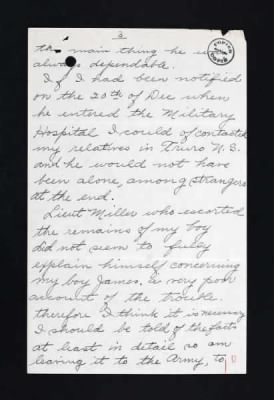 3
the main thing he w
always dependable.
If I had been notified
on the 20th of Dec when
he entered the Military
Hospital I could of contacted
my relatives in Truro N.S.
and he would not have
been alone, among strangers
at the end.
Lieut Miller who escorted
the remains of my boy
did not seem to fully
explain himself concerning
my boy James, & very poor
account of the trouble.
therefore I think it is necessary
I should be told of the facts
at least in detail so am
leaving it to the Army, to